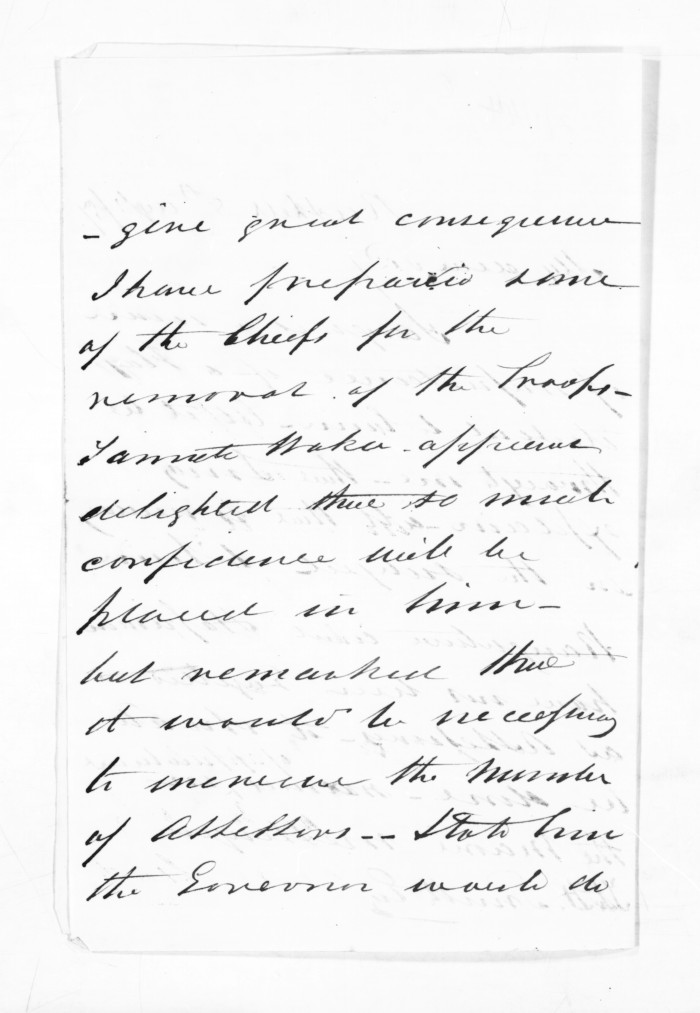 - give great consequence
I have prepared some
of the Chiefs for the
removal of the Troops -
Tamati Waka appears
delighted that so much
confidence will be
placed in him -
but remarked that
it would be necessary
to increase the number
of Assessors -- I told him
the Governor would do